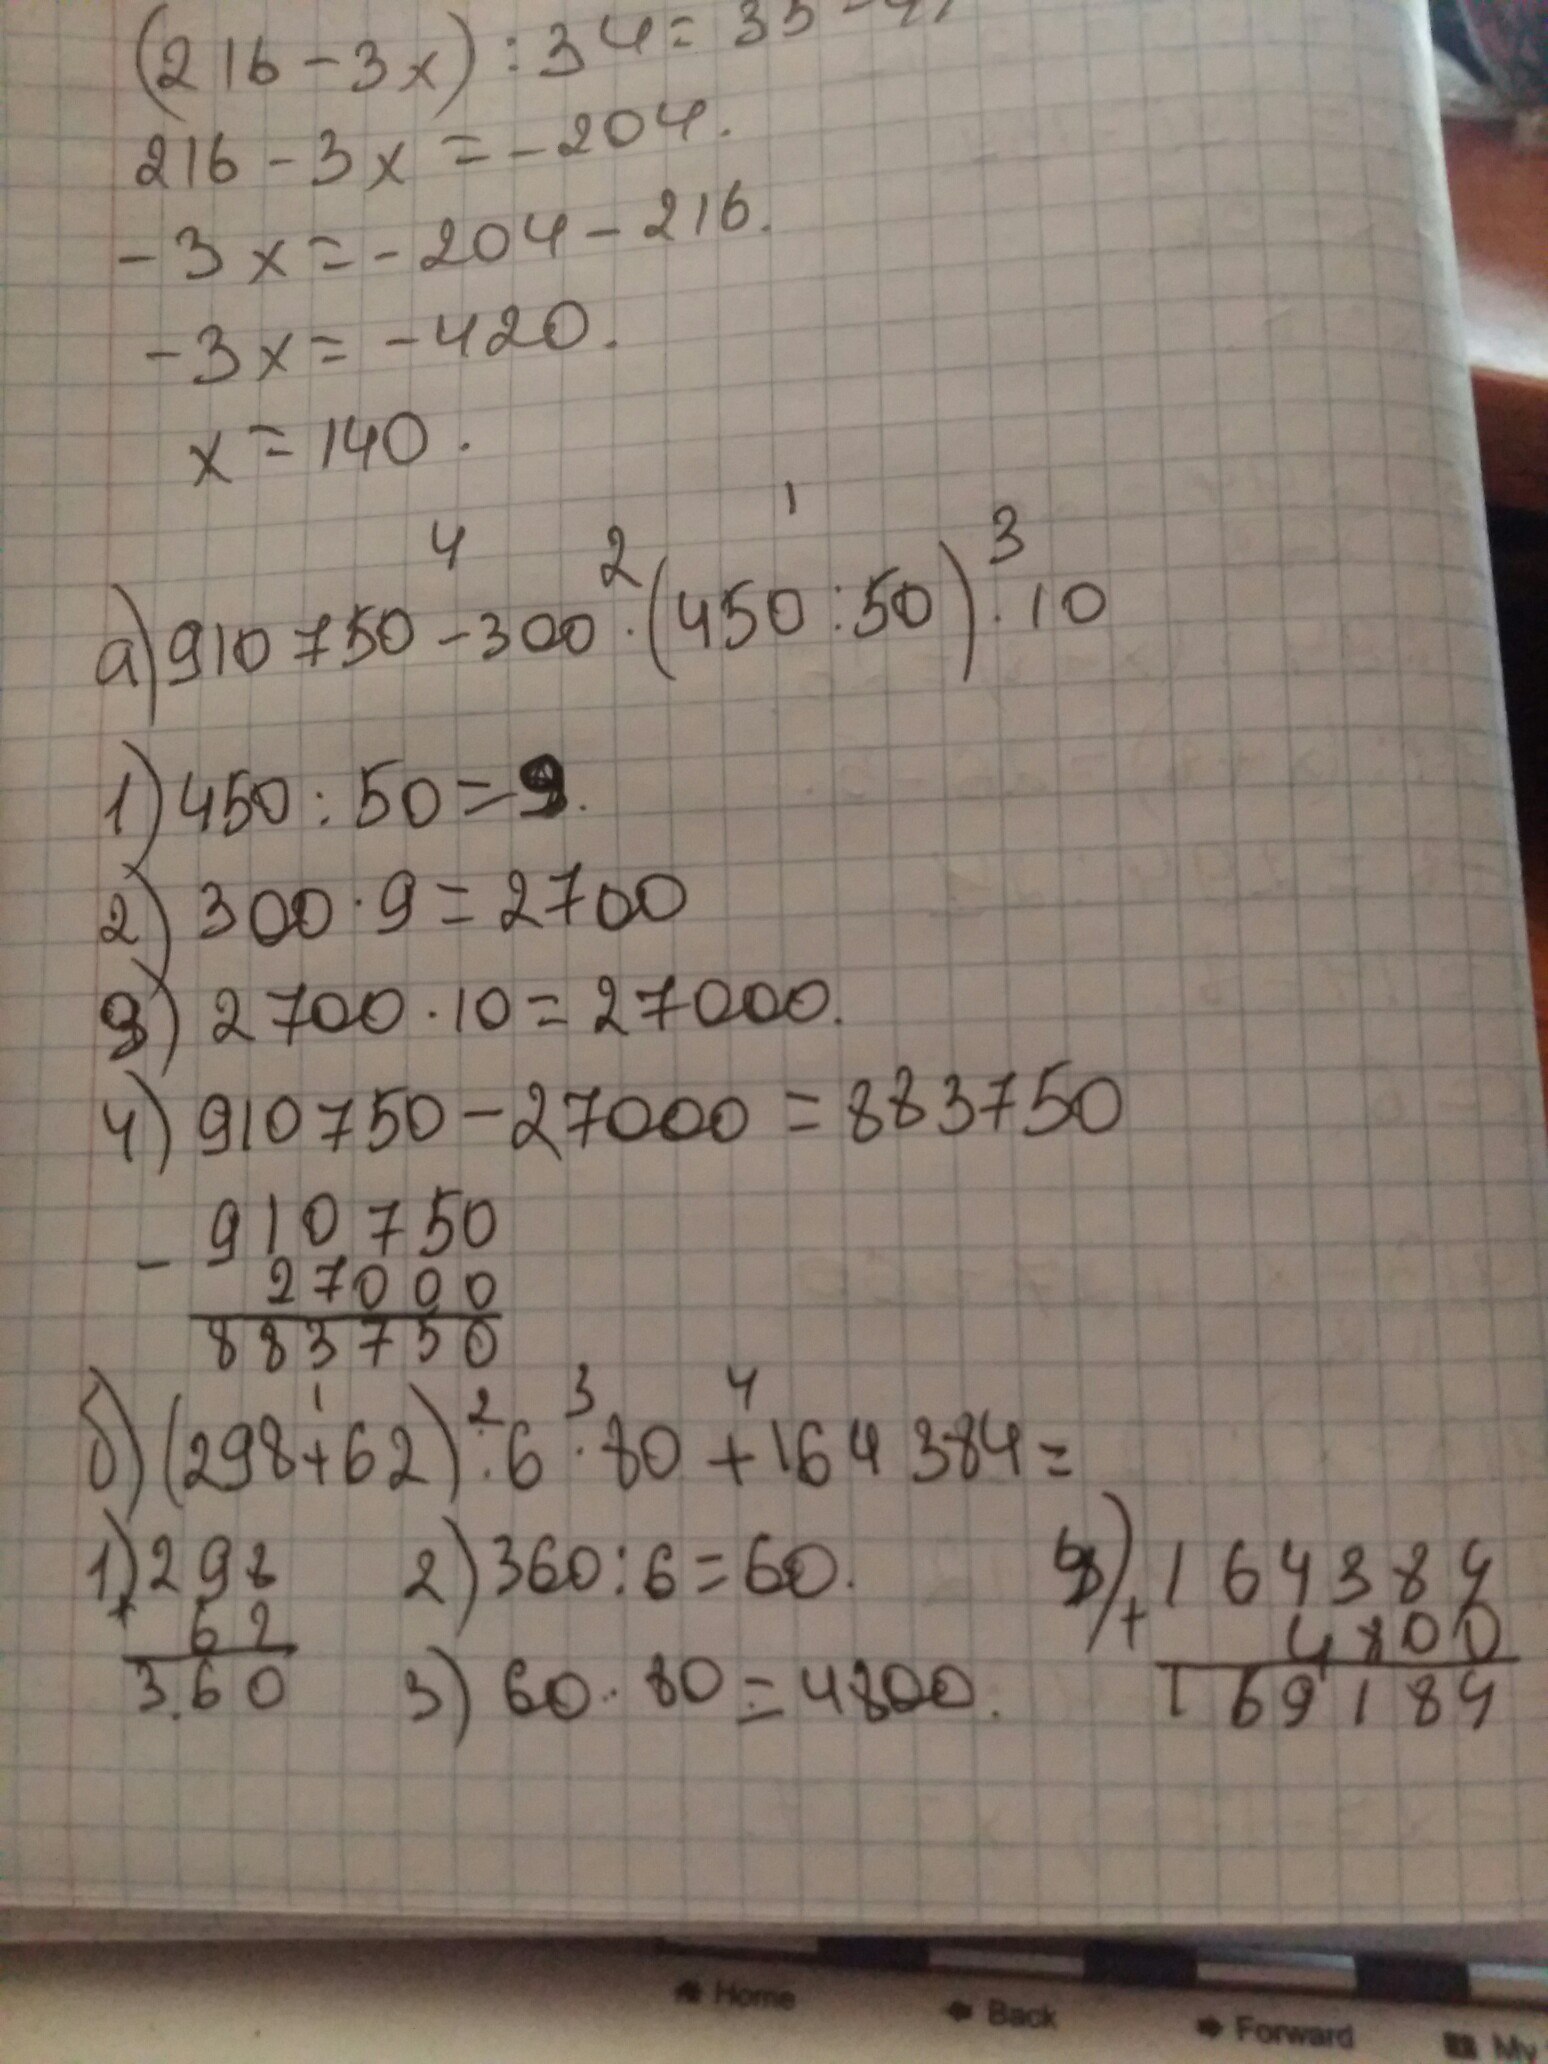 (216-3x):34=35-41
216-3x=-204.
-3x=-204-216.
-3x=-420.
x=140.
4 2 1 3
а) 910750-300·(450:50)·10
1) 450:50=9.
2) 300·9=2700
3) 2700·10=27000.
4) 910750-27000=883750
910750
- 27000
883750
1 2 3 4
б) (298+62):6·80+164384=
1) 298
+ 62
360
2) 360:6=60.
3) 60·80=4800.
4) 164384
+ 4800
169184
Home Back Forward My